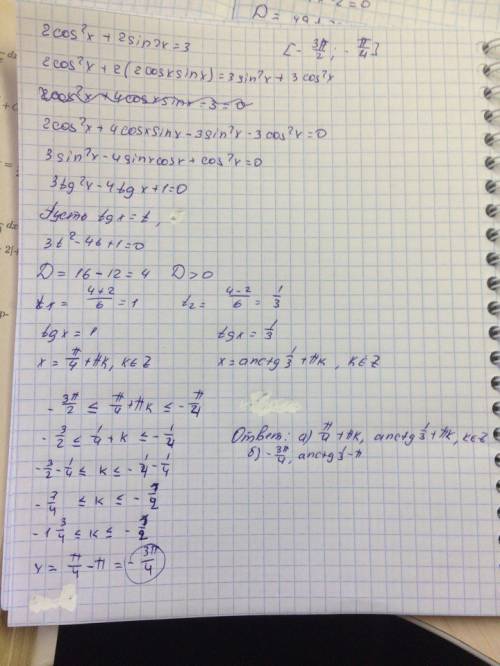 2cos²x + 2sin2x = 3 [-3π/2; -π/4]
2cos²x + 2(2cosxsinx) = 3sin²x + 3cos²x
2cos²x + 4cosxsinx - 3 = 0
2cos²x + 4cosxsinx - 3sin²x - 3cos²x = 0
3sin²x - 4sinxcosx + cos²x = 0
3tg²x - 4tgx + 1 = 0
Пусть tgx = t,
3t² - 4t + 1 = 0
D = 16 - 12 = 4 D > 0
t1 = (4+2)/6 = 1 t2 = (4-2)/6 = 1/3
tgx = 1 tgx = 1/3
x = π/4 + πk, k∈Z x = arctg 1/3 + πk, k∈Z
-3π/2 ≤ π/4 + πk ≤ -π/4
-3/2 ≤ 1/4 + k ≤ -1/4
-3/2 - 1/4 ≤ k ≤ -1/4 - 1/4
-7/4 ≤ k ≤ -1/2
-1 3/4 ≤ k ≤ -1/2
x = π/4 - π = -3π/4
Ответ: а) π/4 + πk, arctg 1/3 + πk, k∈Z
б) -3π/4, arctg 1/3 - π